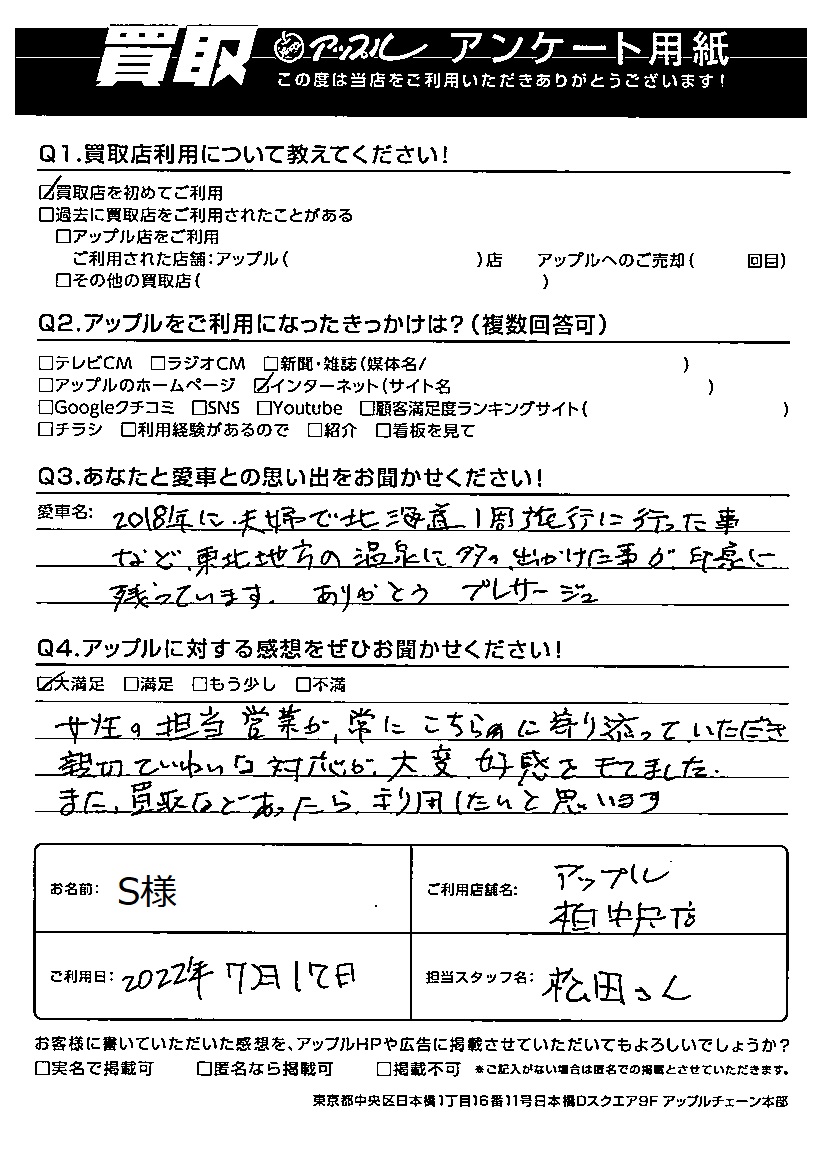 買取 アップル アンケート用紙
この度は当店をご利用いただきありがとうございます!
Q1.買取店利用について教えてください!
☑買取店を初めてご利用
□過去に買取店をご利用されたことがある
□アップル店をご利用
ご利用された店舗:アップル( )店 アップルへのご売却( 回目)
□その他の買取店( )
Q2.アップルをご利用になったきっかけは?(複数回答可)
□テレビCM □ラジオCM □新聞・雑誌(媒体名/ )
□アップルのホームページ ☑インターネット(サイト名 )
□Googleクチコミ □SNS □Youtube □顧客満足度ランキングサイト( )
□チラシ □利用経験があるので □紹介 □看板を見て
Q3.あなたと愛車との思い出をお聞かせください!
愛車名: 2018年に夫婦で北海道1周旅行に行った事
など、東北地方の温泉に多々出かけた事が印象に
残っています。 ありがとう プレサージュ
Q4.アップルに対する感想をぜひお聞かせください!
☑大満足 □満足 □もう少し □不満
女性の担当営業が、常にこちら側に寄り添っていただき
親切ていねいな対応が、大変好感をもてました。
また、買取などあったら、利用したいと思います
お名前: S様
ご利用店舗名: アップル
柏中央店
ご利用日: 2022年7月17日
担当スタッフ名: 松田さん
お客様に書いていただいた感想を、アップルHPや広告に掲載させていただいてもよろしいでしょうか?
□実名で掲載可 □匿名なら掲載可 □掲載不可 ※ご記入がない場合は匿名での掲載とさせていただきます。
東京都中央区日本橋1丁目16番11号日本橋Dスクエア9F アップルチェーン本部